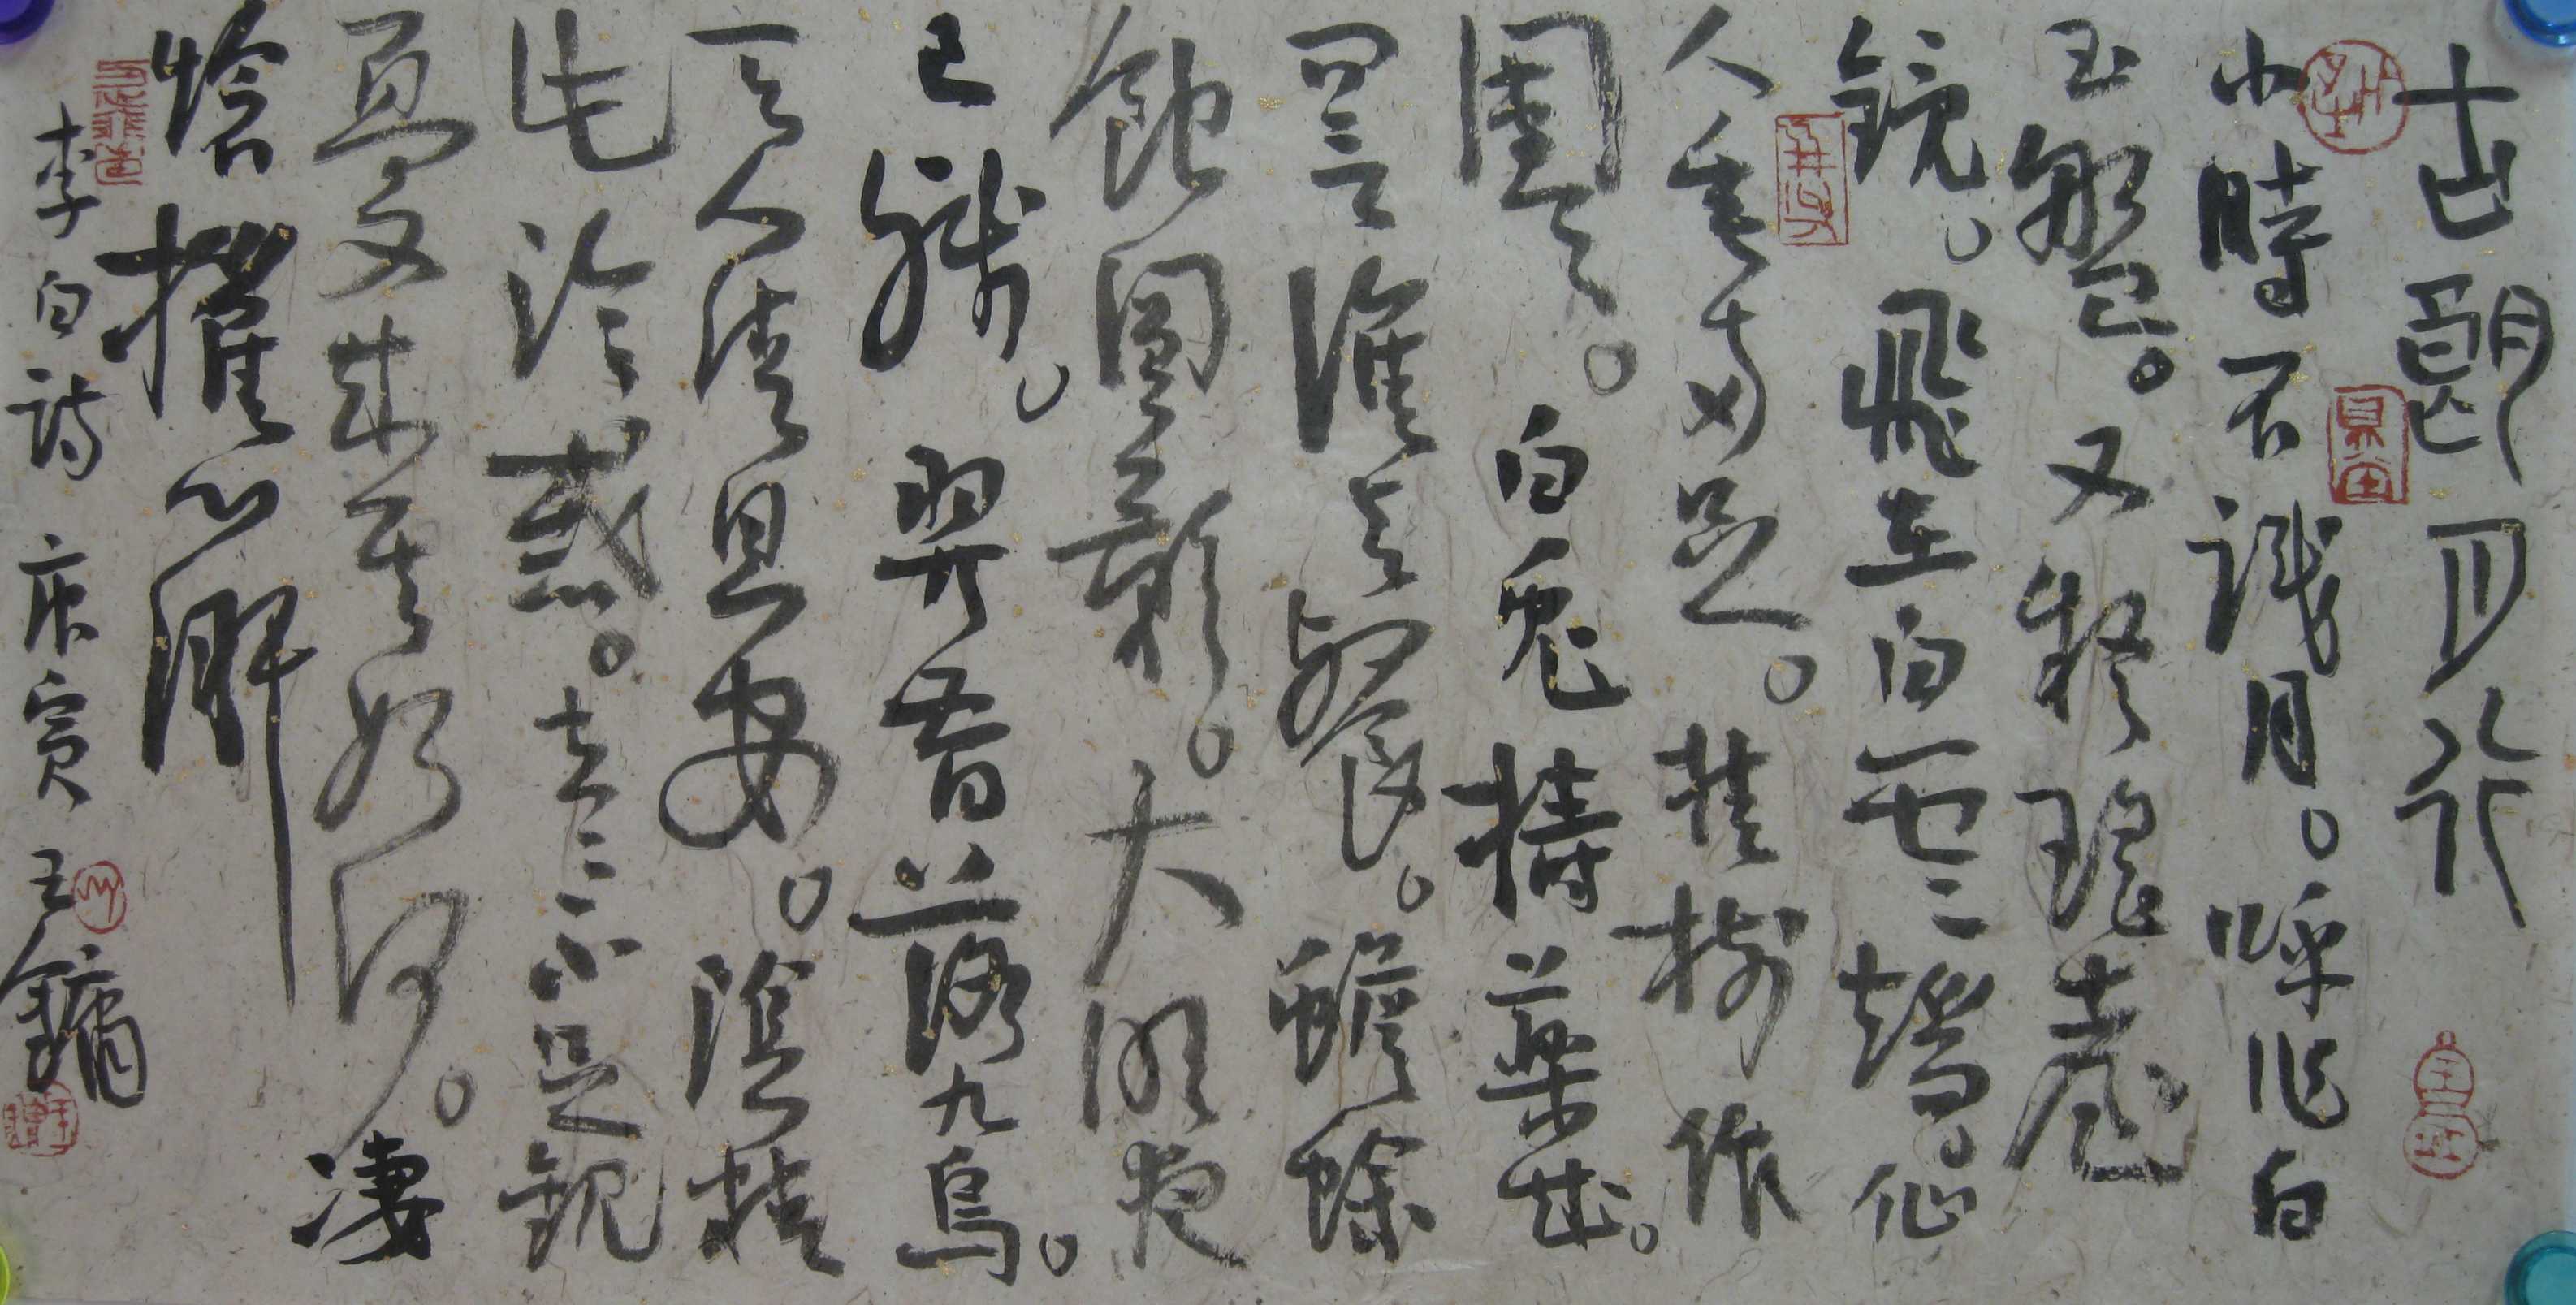 古朗月行
小時不識月。呼作白
玉盤。又疑瑤臺
鏡。飛在白雲端。仙
人垂兩足。桂樹作
團團。白兔擣藥成。
問言誰與餐。蟾蜍
蝕圓影。大明夜
已殘。羿昔落九烏。
天人清且安。陰精
此淪惑。去〻不足觀
憂來其如何。凄
愴摧心肝
李白詩 庚寅 王鏞